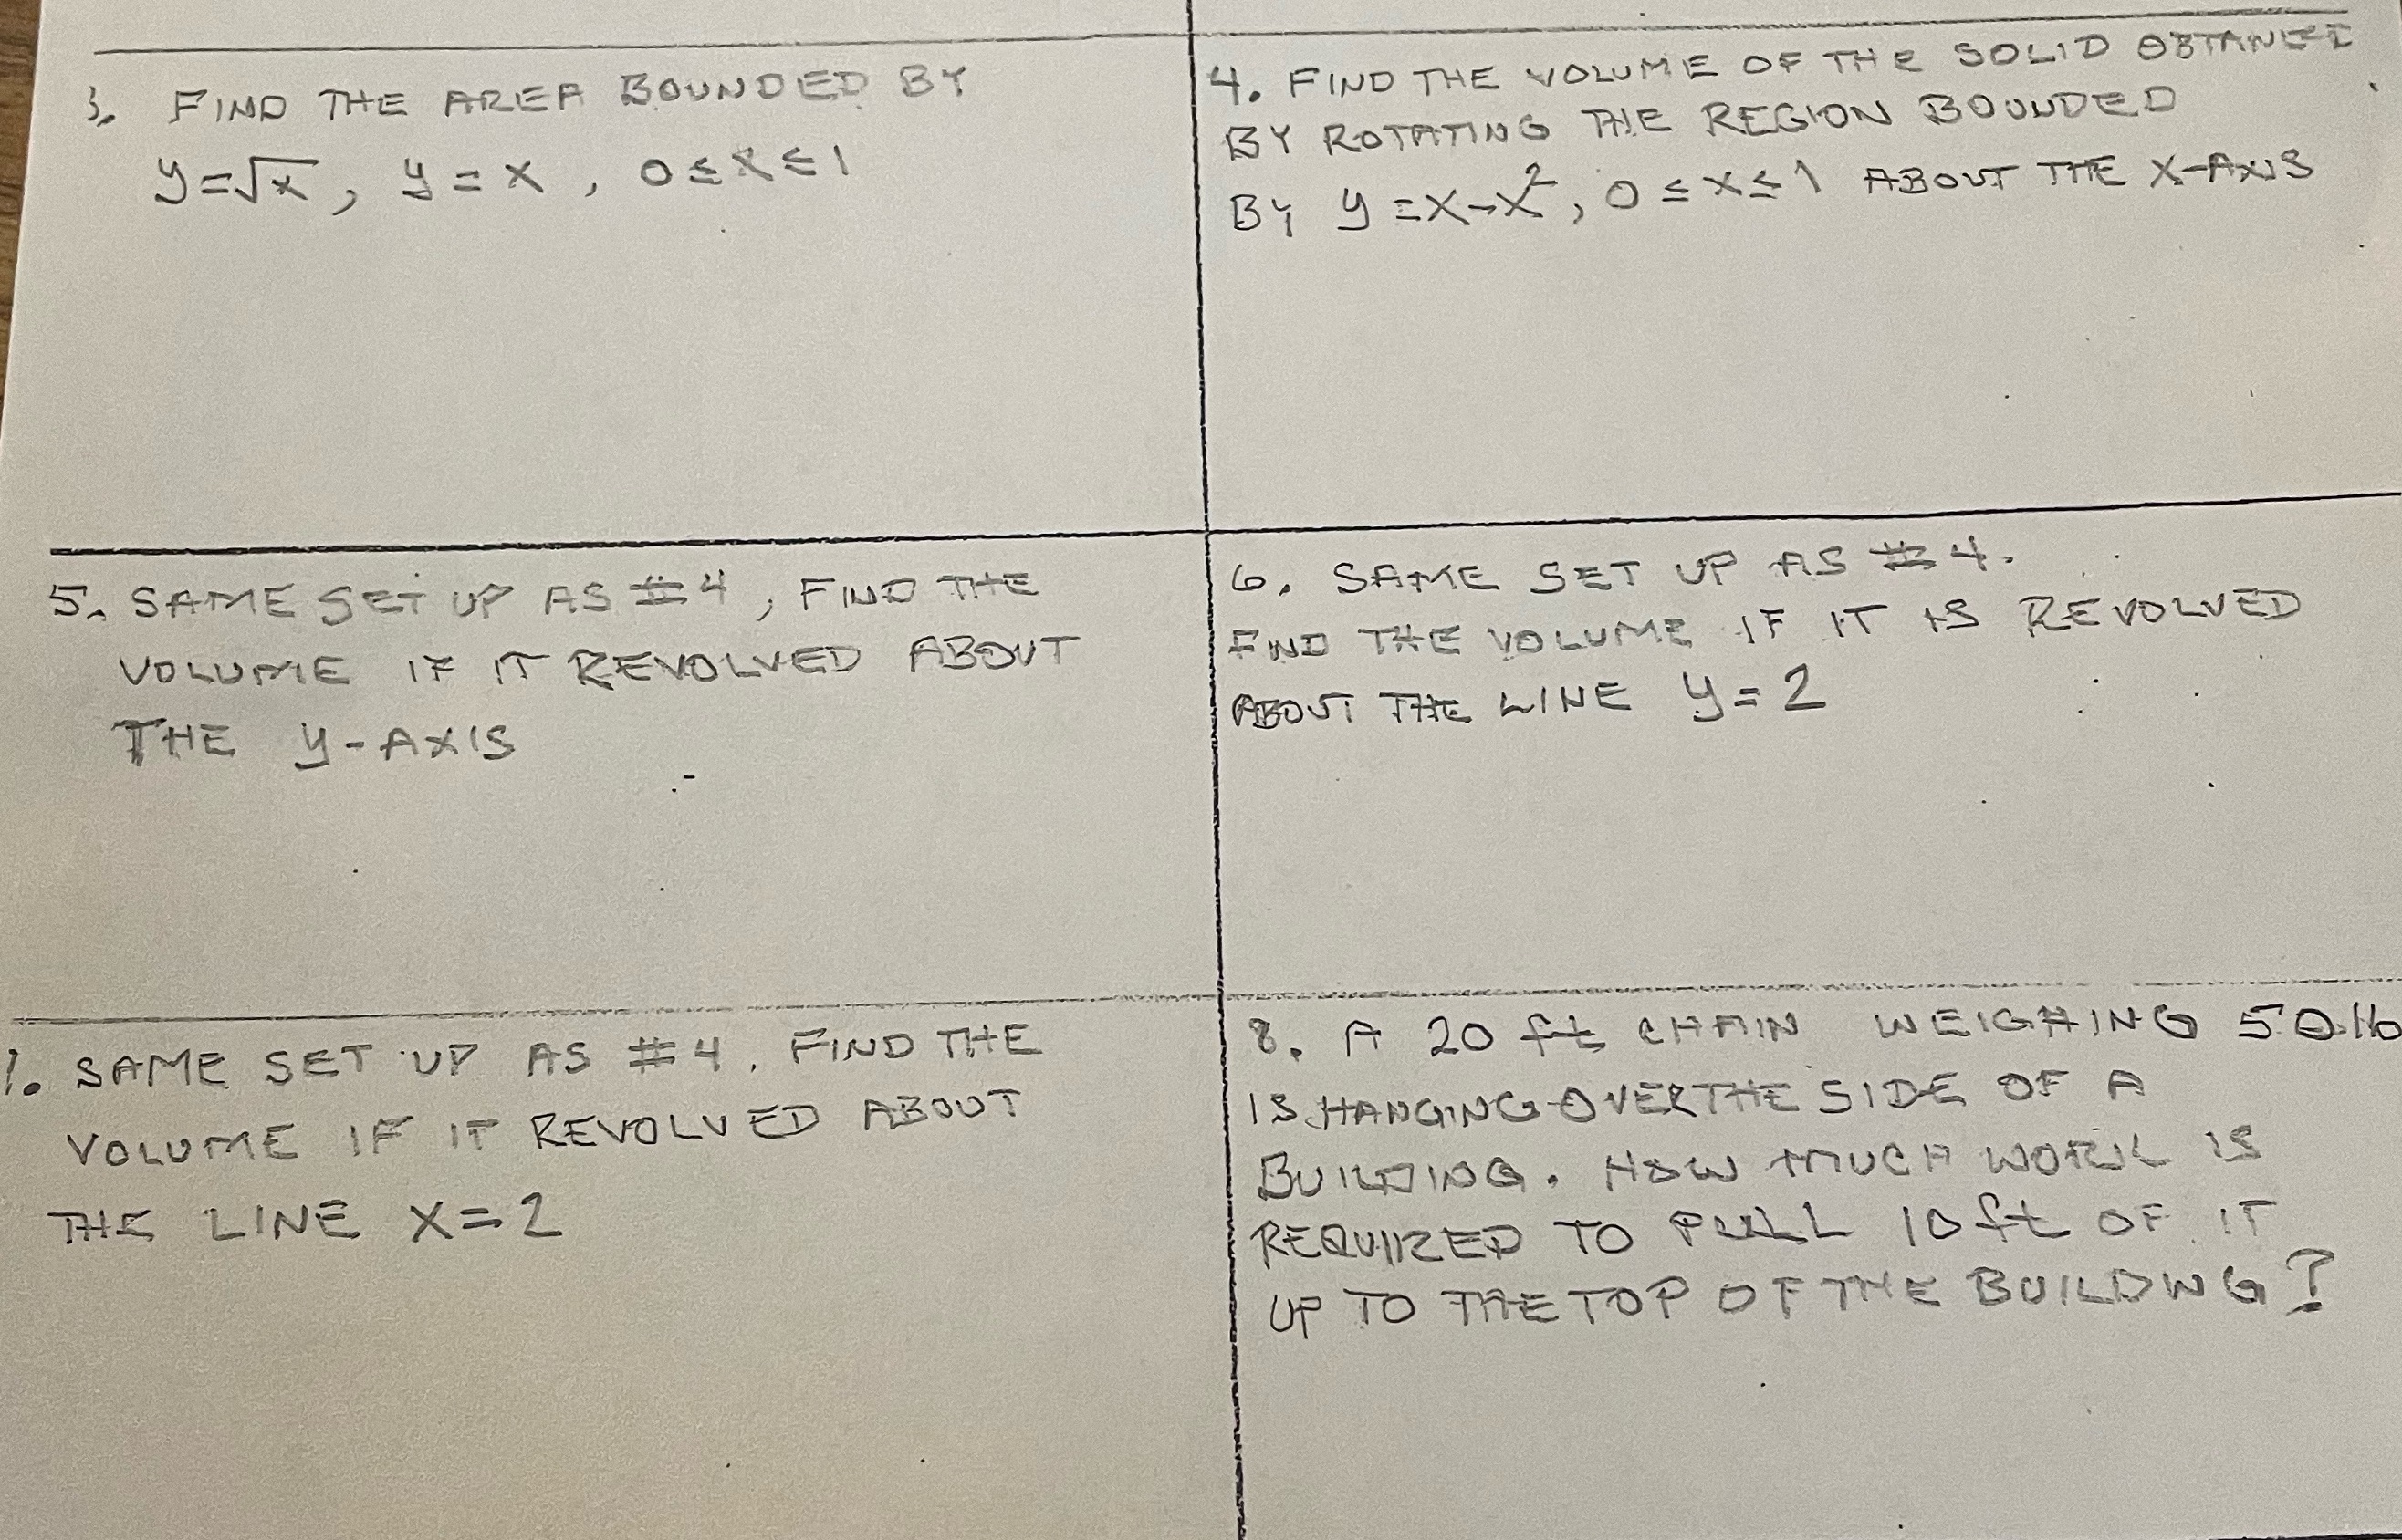 3. FIND THE AREA BOUNDED BY
y=√x, y = x, 0≤x≤1
4. FIND THE VOLUME OF THE SOLID OBTANED
BY ROTATING THE REGION BOUNDED
BY y = x-x², 0≤x≤1 ABOUT THE X-AXIS
5. SAME SET UP AS #4, FIND THE
VOLUME IF IT REVOLVED ABOUT
THE y-AXIS
6. SAME SET UP AS #4.
FIND THE VOLUME IF IT IS REVOLVED
ABOUT THE LINE y=2
7. SAME SET UP AS #4. FIND THE
VOLUME IF IT REVOLVED ABOUT
THE LINE X=2
8. A 20 ft CHAIN WEIGHING 50 lb
IS HANGING OVER THE SIDE OF A
BUILDING. HOW MUCH WORK IS
REQUIRED TO PULL 10 ft OF IT
UP TO THE TOP OF THE BUILDING?